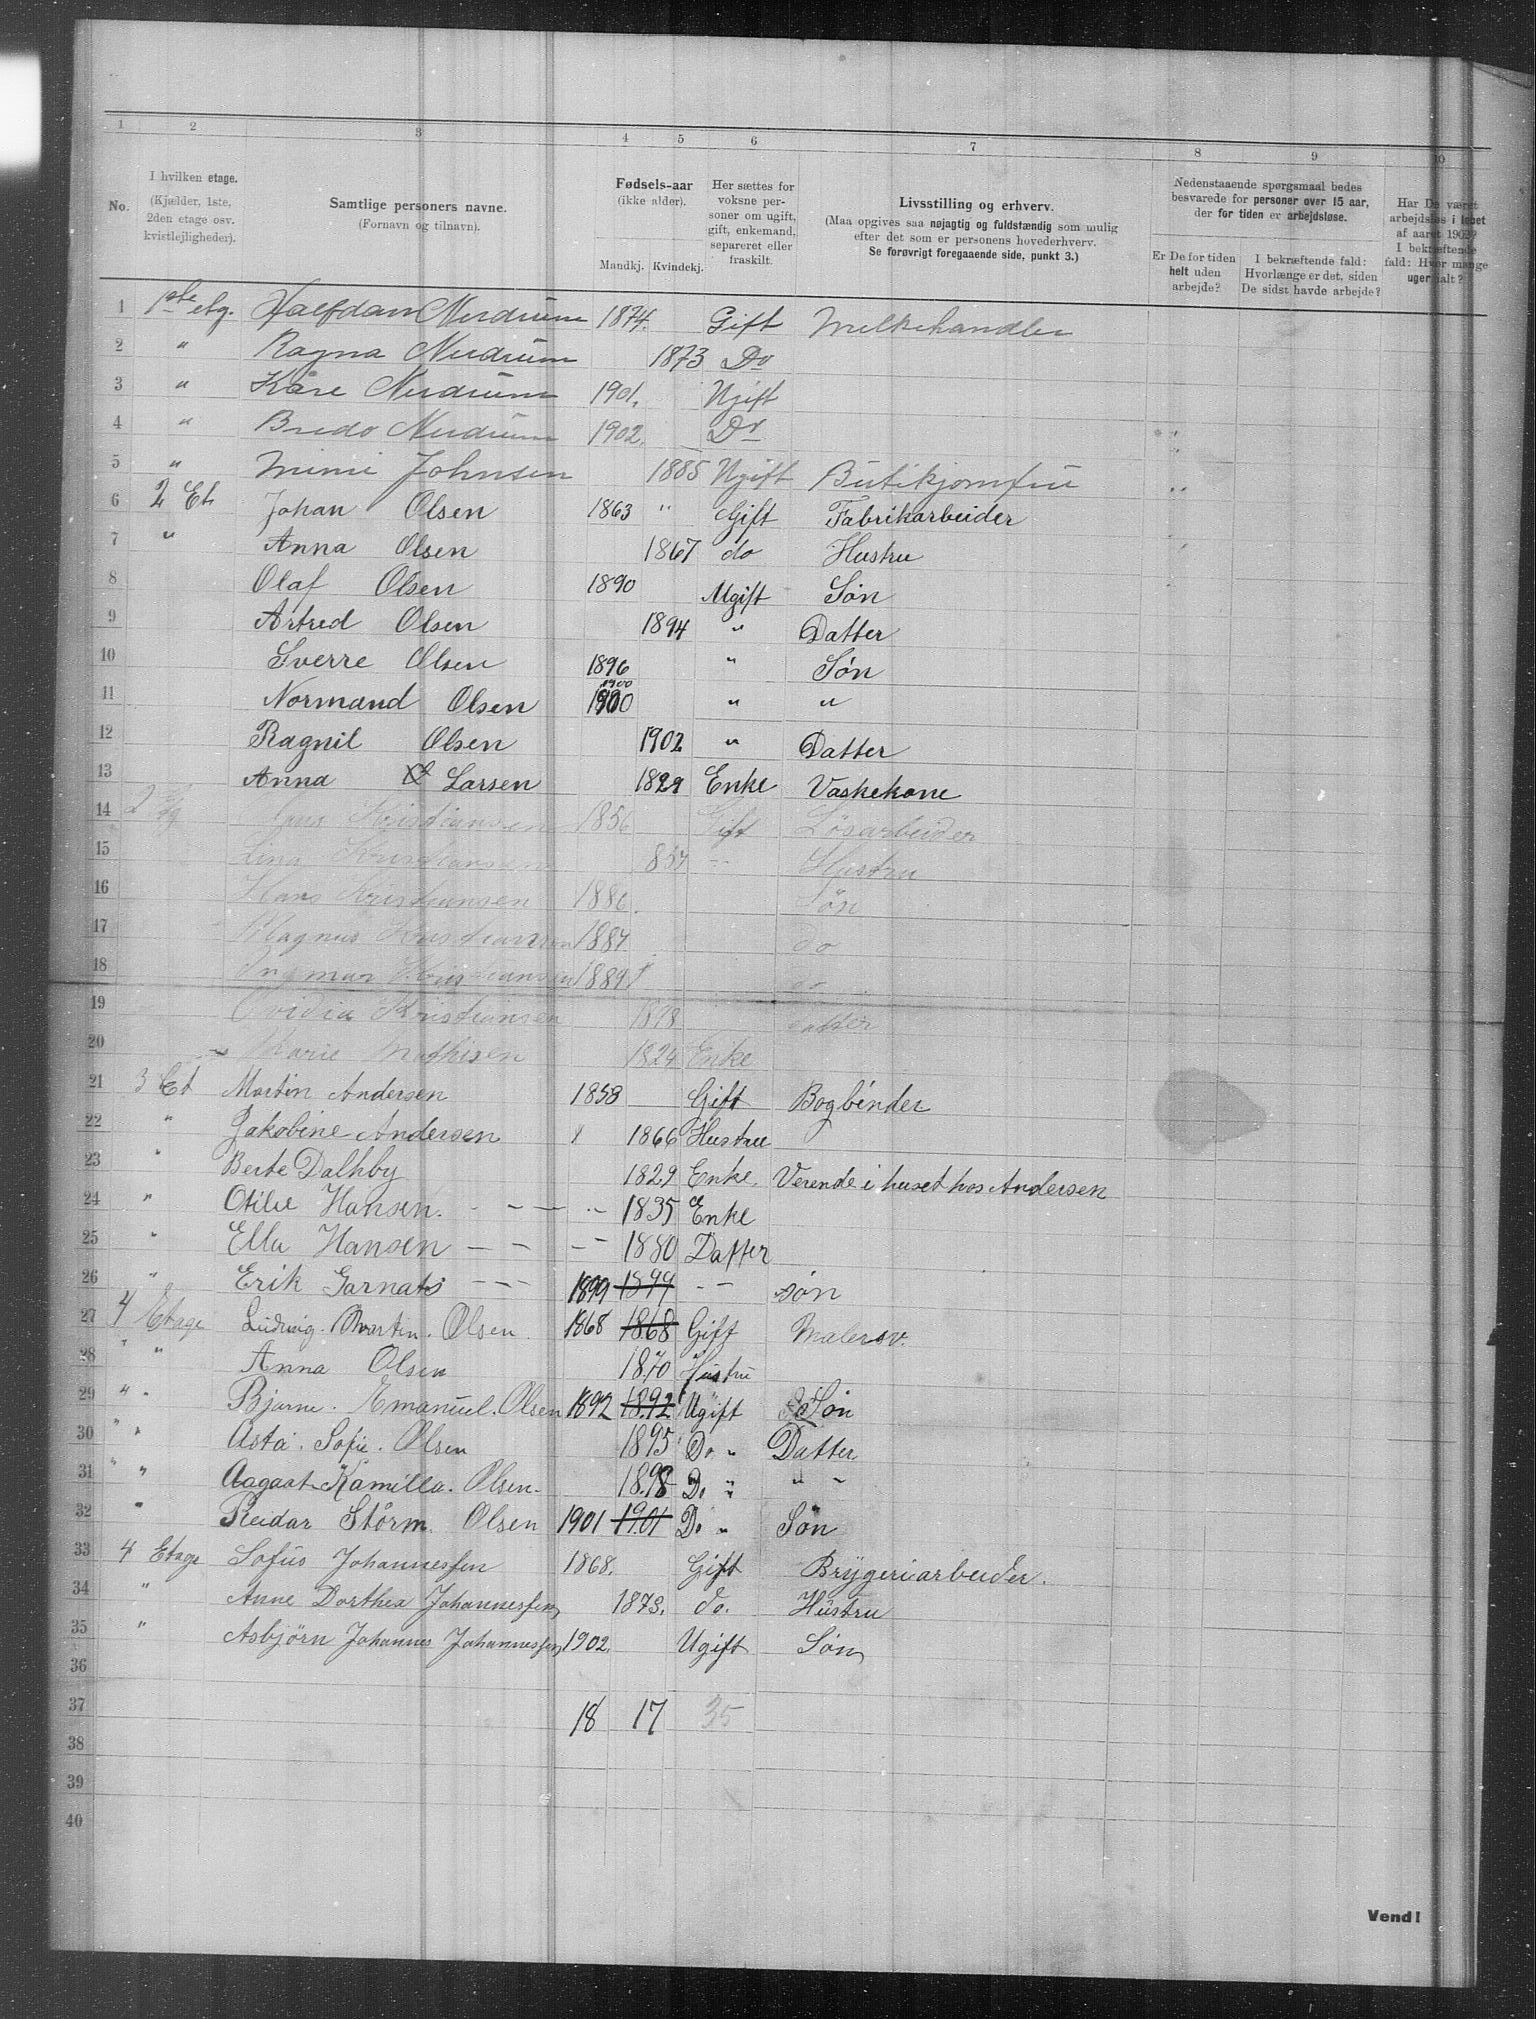 1 2 3 4 5 6 7 8 9 10
No. I hvilken etage. (Kjælder, 1ste, 2den etage osv. kvistlejligheder). Samtlige personers navne. (Fornavn og tilnavn). Fødsels-aar (ikke alder). Mandkj. Kvindekj. Her sættes for voksne personer om ugift, gift, enkemand, separeret eller fraskilt. Livsstilling og erhverv. (Maa opgives saa nøjagtig og fuldstændig som mulig efter det som er personens hovederhverv. Se forøvrigt foregaaende side, punkt 3.) Nedenstaaende spørgsmaal bedes besvarede for personer over 15 aar, der for tiden er arbejdsløse. Er De for tiden helt uden arbejde? I bekræftende fald: Hvorlænge er det, siden De sidst havde arbejde? Har De været arbejdsløs i løbet af aaret 1902? I bekræftende fald: Hvor mange uger ialt?
1 1ste etg. Halfdan Nerdrum 1874. Gift Melkehandler
2 " Ragna Nerdrum 1873 Do
3 " Kåre Nerdrum 1901. Ugift
4 " Bredo Nerdrum 1902. Do
5 " Mimi Johnsen 1885 Ugift Butikjomfru
6 2 Et Johan Olsen 1863 " Gift Fabrikarbeider
7 " Anna Olsen 1867 do Hustru
8 Olaf Olsen 1890 Ugift Søn
9 Astred Olsen 1894 " Datter
10 Sverre Olsen 1896 " Søn
11 Normand Olsen 1900 1900 " "
12 Ragnil Olsen 1902 " Datter
13 Anna Larsen 1829 Enke Vaskekone
14 2 Kristiansen 1856 Gift Løsarbeider
15 Lina Kristiansen 857 " Hustru
16 Hans Kristiansen 1886. Sön
17 Magnus Kristiansen 1887 do
18 Ingmar Kristiansen 1889 do
19 Ovidia Kristiansen 1898 datter
20 Marie Mathisen 1824 Enke
21 3 Et Martin Andersen 1858 Gift Bogbinder
22 " Jakobine Andersen 1866 Hustru
23 " Berte Dalhby 1829 Enke. Verende i huset hos Andersen
24 " Otilie Hansen. - - - - 1835 Enke
25 " Ella Hansen - - - - 1880 Datter
26 " Erik Garnats - - - 1899 1899 - - søn
27 4 Etage Ludvig. Martin. Olsen. 1868 1868 Gift Malersv.
28 " " Anna Olsen 1870 Hustru
29 " " Bjarne. Emanuel. Olsen 1892 1892 Ugift Søn
30 " " Asta. Sofie. Olsen 1895 Do " Datter
31 " " Aagaat Kamilla. Olsen. 1898 Do " " "
32 " Reidar Storm. Olsen 1901 1901 Do " Søn
33 4 Etage Sofus Johannessen 1868. Gift Bryggeriarbeider.
34 " Anne Dorthea Johannessen 1873. do. Hustru
35 " Asbjörn Johannes Johannessen 1902. Ugift Søn
36
37 18 17 35
38
39
40
Vend!